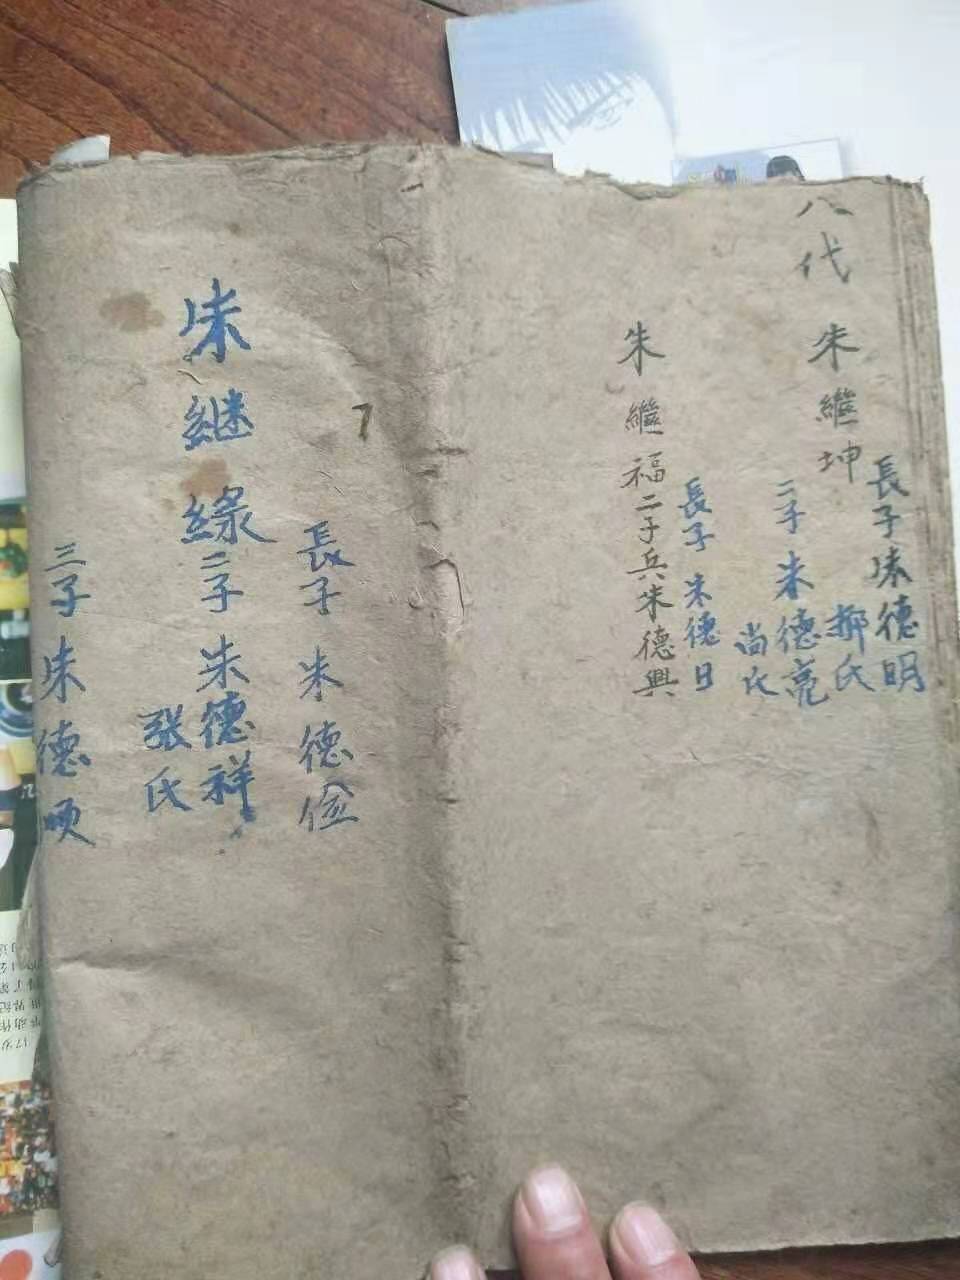 八代
朱繼坤
長子朱德明
郝氏
二子朱德亮
尚氏
朱繼福
長子朱德日
二子兵朱德興
7
朱継緣
長子朱德儉
二子朱德祥
张氏
三子朱德順